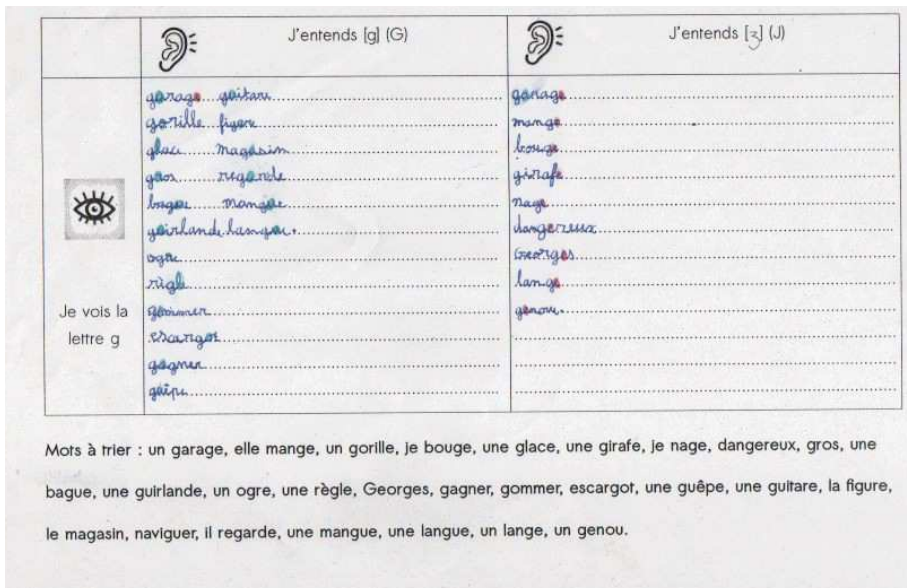 J'entends [g] (G)
J'entends [ʒ] (J)
Je vois la
lettre g
garage guitare
gorille figure
glace magasin
gros regarde
bague mangue
guirlande langue.
ogre
règle
gommer
escargot
gagner
guêpe
garage
mange
bouge
girafe
nage
dangereux
Georges
lange
genou.
Mots à trier : un garage, elle mange, un gorille, je bouge, une glace, une girafe, je nage, dangereux, gros, une
bague, une guirlande, un ogre, une règle, Georges, gagner, gommer, escargot, une guêpe, une guitare, la figure,
le magasin, naviguer, il regarde, une mangue, une langue, un lange, un genou.